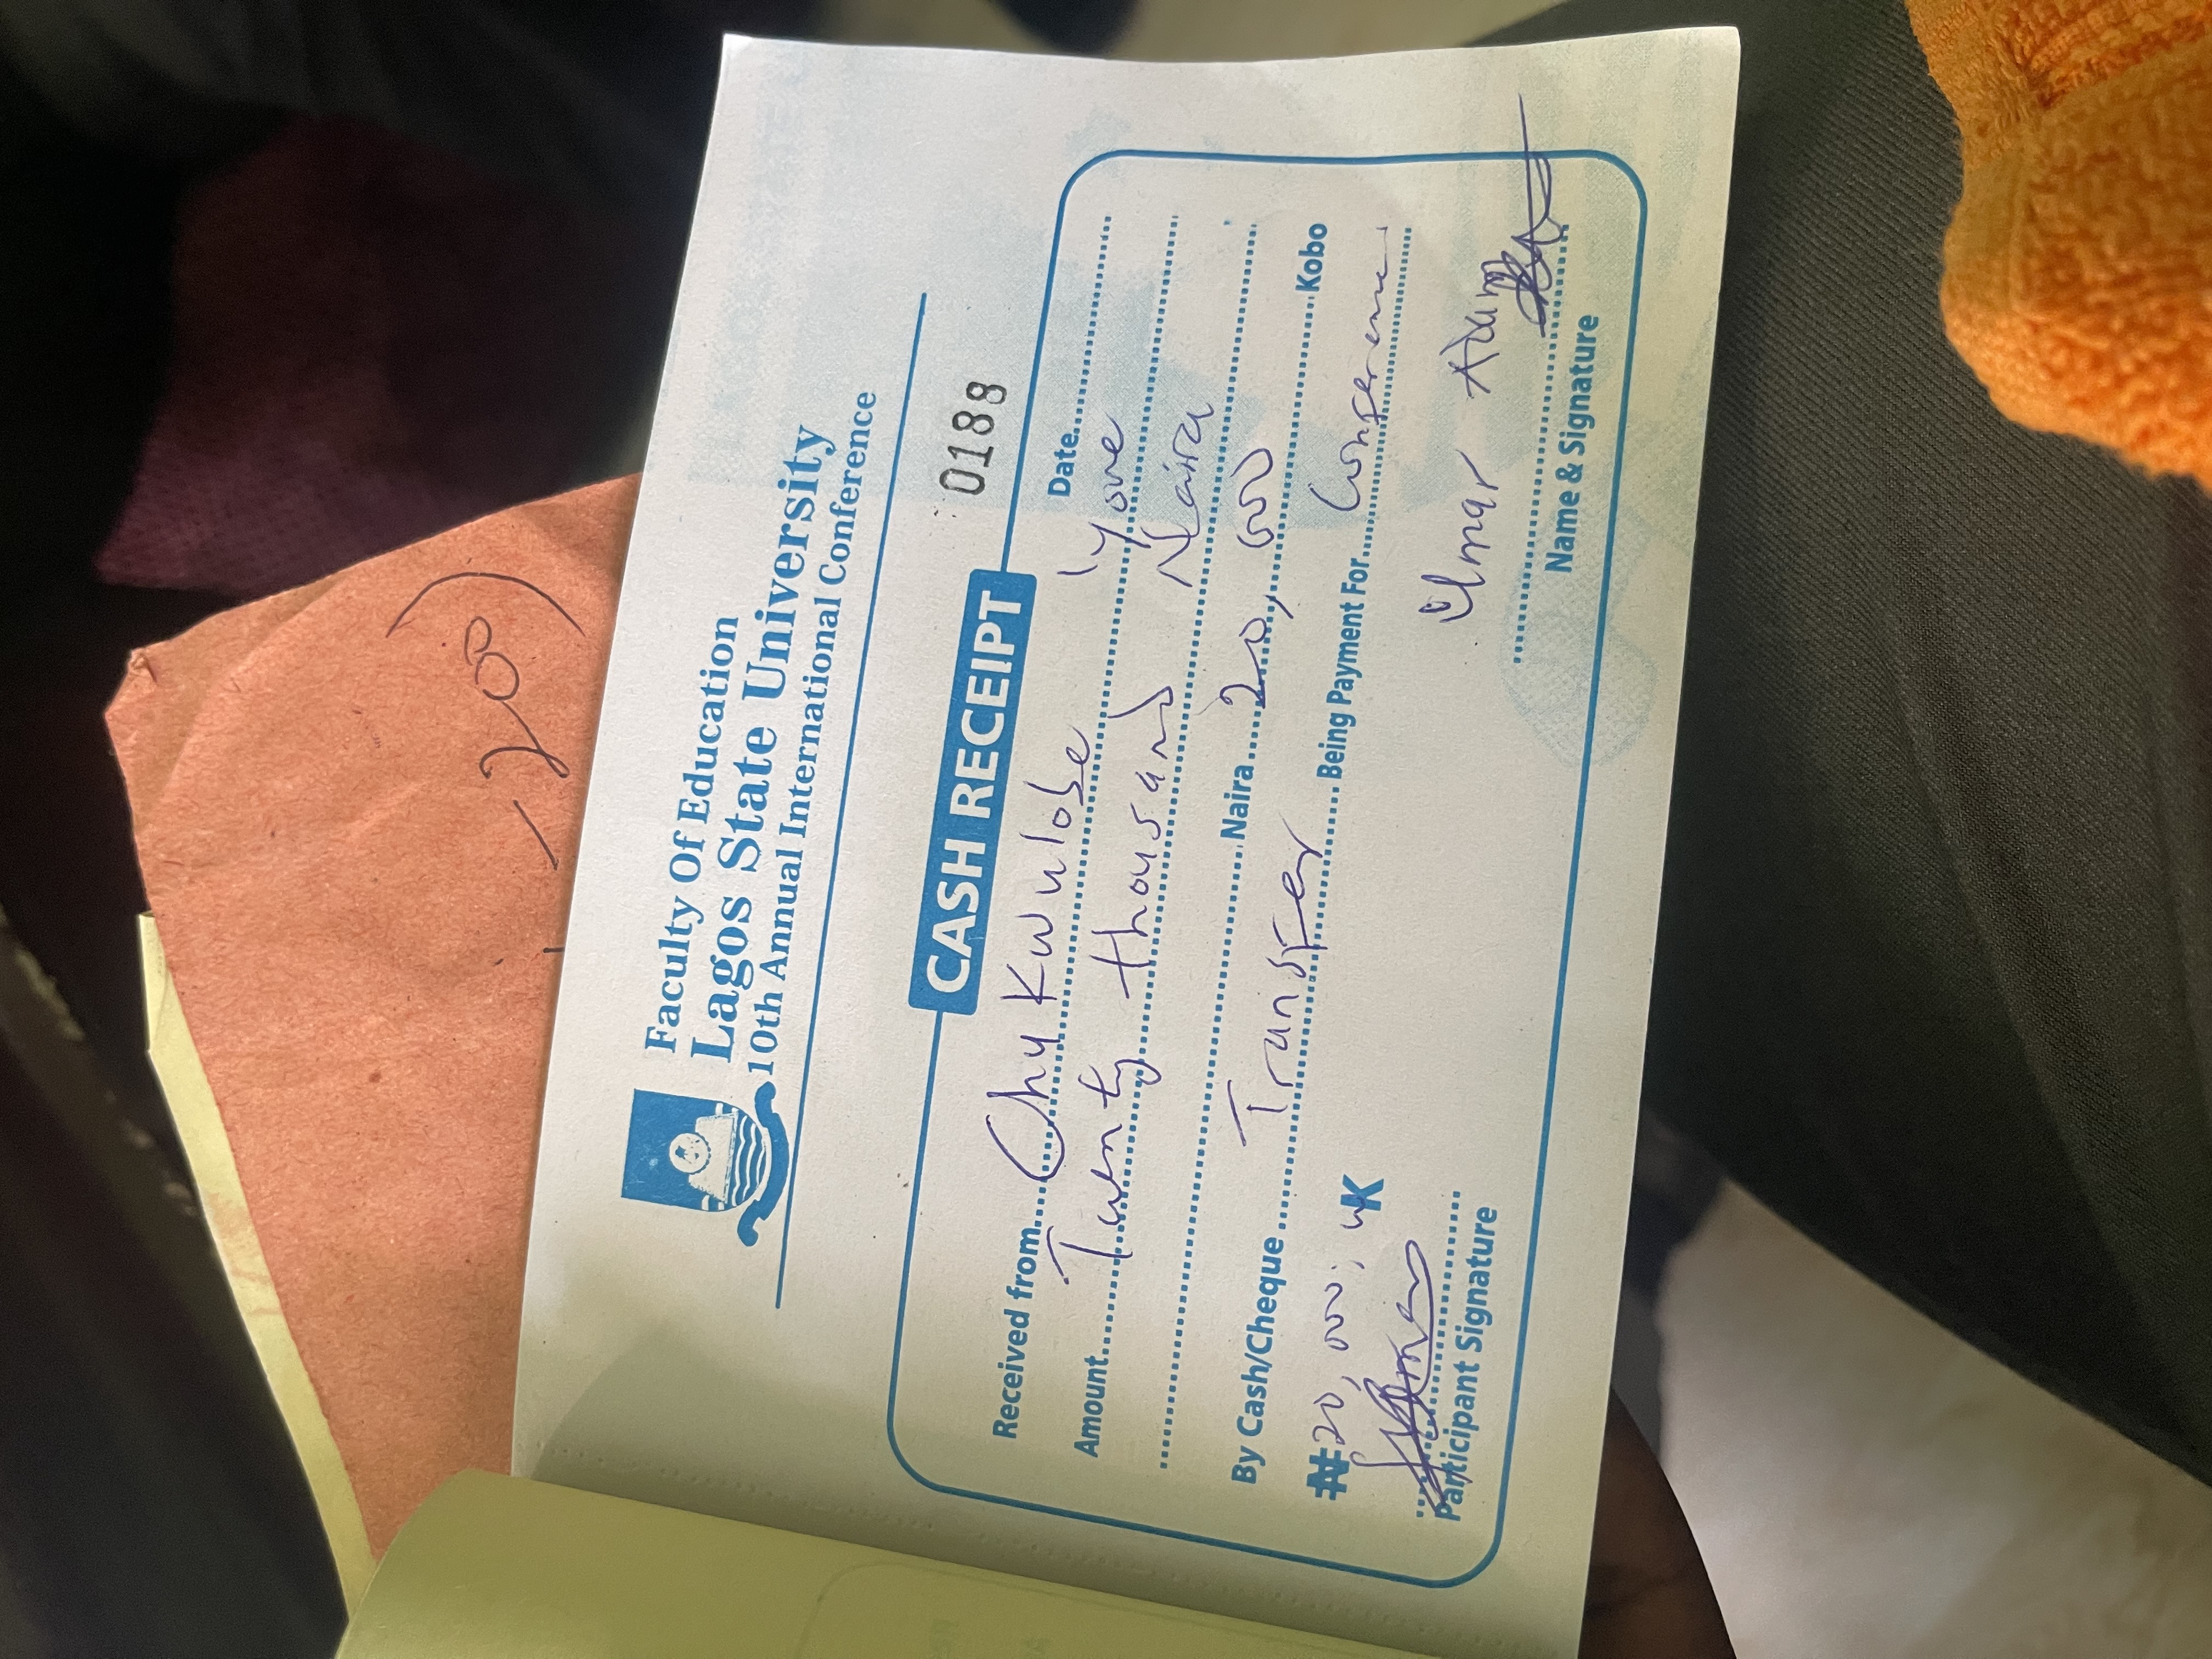 Faculty Of Education
Lagos State University
10th Annual International Conference
CASH RECEIPT
0188
Date
Received from Chukwulobe
Amount Twenty thousand Naira
Naira 20,000 Kobo
By Cash/Cheque Transfer Being Payment For Conference
₦ 20,000; K
Umar Adam
Participant Signature
Name & Signature